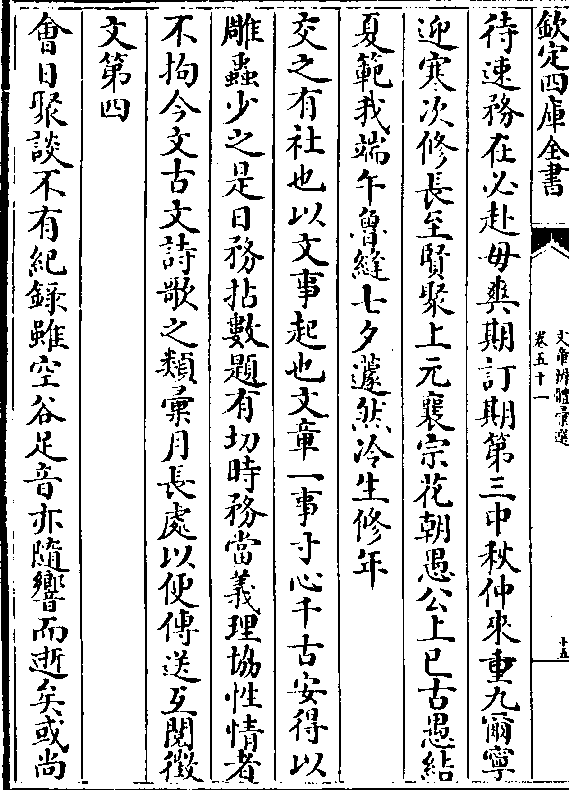 欽定四庫全書
文章辨體彙選
卷五十一
十五
待速務在必赴毋爽期訂期第三中秋仲來重九爾寧
迎寒次修長至賢聚上元襄宗花朝愚公上巳古愚結
夏範我端午魯縫七夕蘧然冷生修年
交之有社也以文事起也文章一事寸心千古安得以
雕蟲少之是日務拈數題有切時務當義理協性情者
不拘今文古文詩歌之類彙月長處以便傳送互閱徵
文第四
會日聚談不有紀錄雖空谷足音亦隨響而逝矣或尚